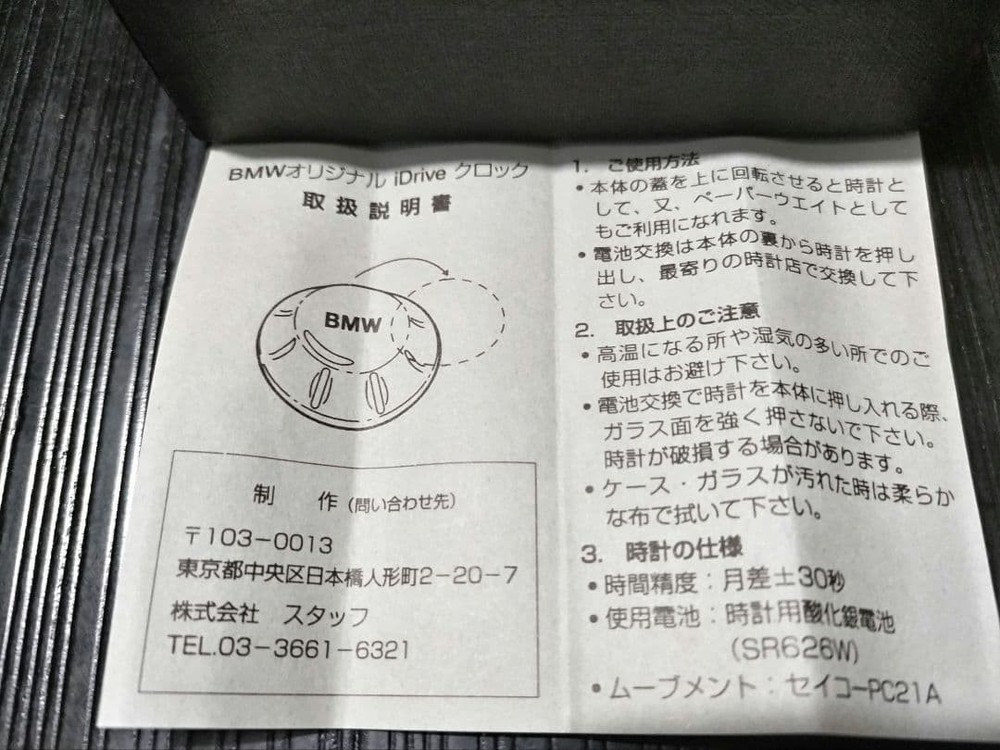 BMWオリジナル iDrive クロック
取扱説明書
BMW
制　作（問い合わせ先）
〒103−0013
東京都中央区日本橋人形町2−20−7
株式会社　スタッフ
TEL.03−3661−6321
1.　ご使用方法
・本体の蓋を上に回転させると時計と
して、又、ペーパーウエイトとして
もご利用になれます。
・電池交換は本体の裏から時計を押し
出し、最寄りの時計店で交換して下
さい。
2.　取扱上のご注意
・高温になる所や湿気の多い所でのご
使用はお避け下さい。
・電池交換で時計を本体に押し入れる際、
ガラス面を強く押さないで下さい。
時計が破損する場合があります。
・ケース・ガラスが汚れた時は柔らか
な布で拭いて下さい。
3.　時計の仕様
・時間精度：月差±30秒
・使用電池：時計用酸化銀電池
（SR626W）
・ムーブメント：セイコーPC21A